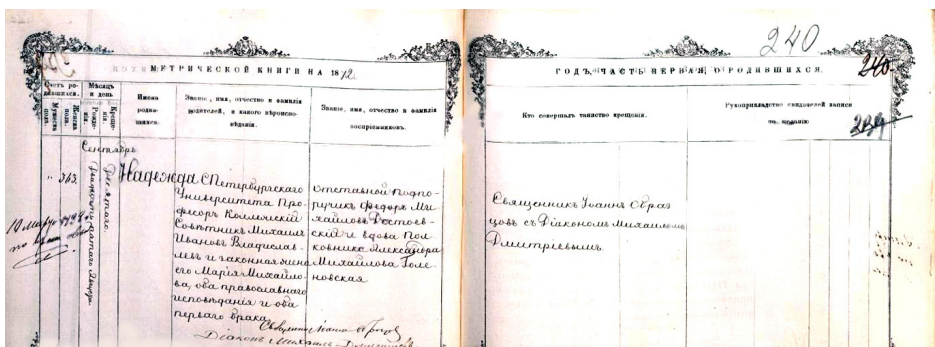 240
МЕТРИЧЕСКОЙ КНИГИ НА 1872.
ГОДЪ, ЧАСТЬ ПЕРВАЯ, О РОДИВШИХСЯ.
240
Счетъ родившихся.
Мужеска пола.
Женска пола.
Мѣсяцъ и день
Рожденія.
Крещенія.
Имена родившихся.
Званіе, имя, отчество и фамилія
родителей, и какого вѣроисповѣданія.
Званіе, имя, отчество и фамилія
воспріемниковъ.
Кто совершалъ таинство крещенія.
Рукоприкладство свидѣтелей записи
по желанію
239
Сентябрь
" 363.
Десятаго
Надежда
СПетербургскаго
Университета Про-
фесоръ Коллежскій
Совѣтникъ Михаилъ
Ивановъ Владислав-
левъ и законная жена
его Марія Михайло-
ва, оба православнаго
исповѣданія и оба
перваго брака
отставной Подпо-
ручикъ Федоръ Ми-
хайловъ Достоев-
скій и вдова Пол-
ковника Александра
Михайлова Голе-
новская
Священникъ Іоаннъ Образ
цовъ съ Діакономъ Михаиломъ
Дмитріевымъ.
Священникъ Іоаннъ Образцовъ
Діаконъ Михаилъ Дмитріевъ